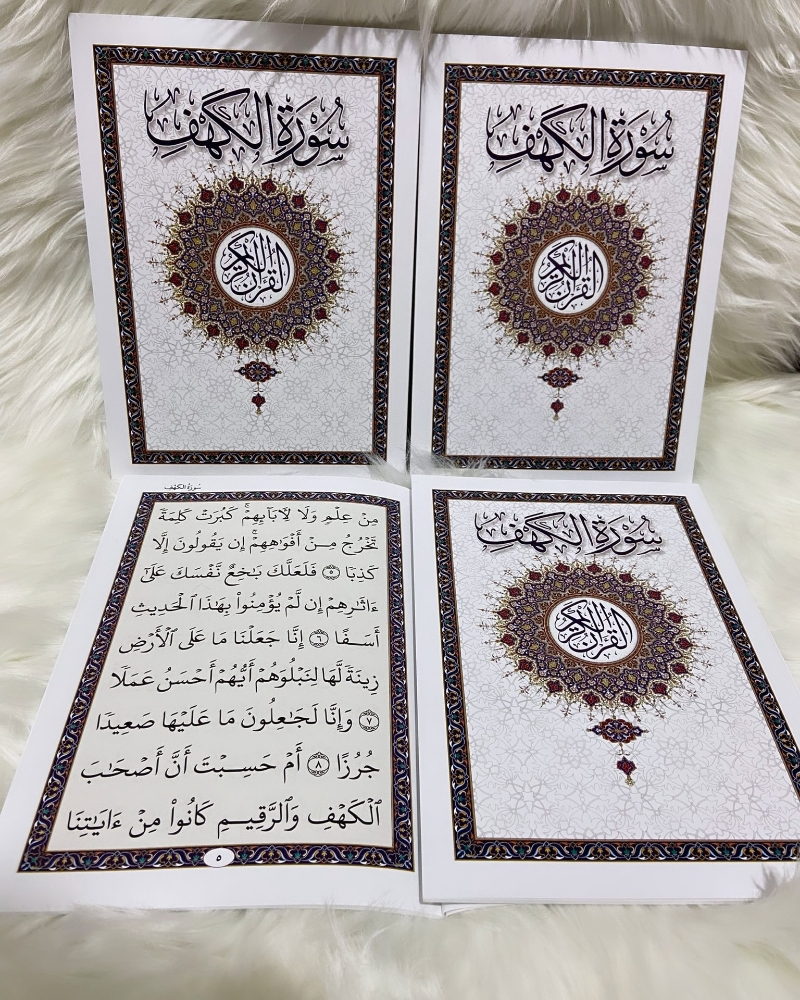 سُورَةُ الكَهْفِ
القرآن الكريم
سُورَةُ الكَهْفِ
القرآن الكريم
سُورَةُ الكَهْفِ
مِنْ عِلْمٍ وَلَا لِأٓبَآئِهِمْۚ كَبُرَتْ كَلِمَةً
تَخْرُجُ مِنْ أَفْوَٰهِهِمْۚ إِن يَقُولُونَ إِلَّا
كَذِبًا ٥ فَلَعَلَّكَ بَٰخِعٌ نَّفْسَكَ عَلَىٰٓ
ءَاثَٰرِهِمْ إِن لَّمْ يُؤْمِنُوا۟ بِهَٰذَا ٱلْحَدِيثِ
أَسَفًا ٦ إِنَّا جَعَلْنَا مَا عَلَى ٱلْأَرْضِ
زِينَةً لَّهَا لِنَبْلُوَهُمْ أَيُّهُمْ أَحْسَنُ عَمَلًا
٧ وَإِنَّا لَجَٰعِلُونَ مَا عَلَيْهَا صَعِيدًا
جُرُزًا ٨ أَمْ حَسِبْتَ أَنَّ أَصْحَٰبَ
ٱلْكَهْفِ وَٱلرَّقِيمِ كَانُوا۟ مِنْ ءَايَٰتِنَا
٥
سُورَةُ الكَهْفِ
القرآن الكريم